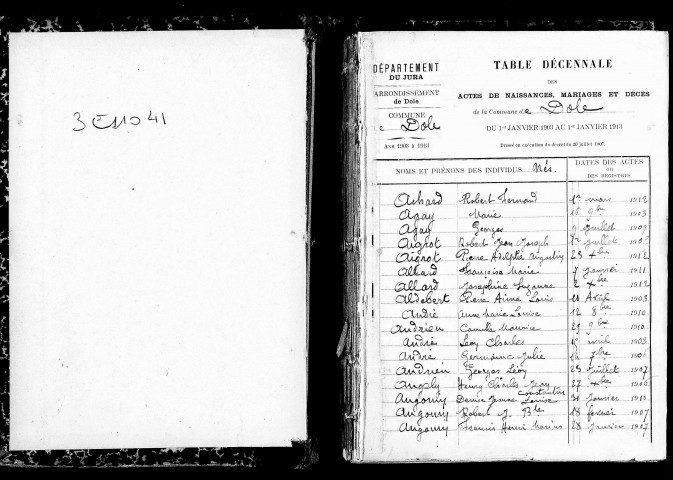 3 E 11041
DÉPARTEMENT
DU JURA
ARRONDISSEMENT
de Dole
COMMUNE
e Dole
Ans 1903 à 1913
TABLE DÉCENNALE
DES
ACTES DE NAISSANCES, MARIAGES ET DÉCÈS
de la Commune de Dole
DU 1er JANVIER 1903 AU 1er JANVIER 1913
Dressé en exécution du décret du 20 juillet 1807.
NOMS ET PRÉNONS DES INDIVIDUS Nés.
DATES DES ACTES
OU
DES REGISTRES
Achard Robert Fernand 1er mars 1912
Agay Marie 16 9bre 1903
Agay Georges juillet 1909
Aigrot Robert Jean Joseph juillet
Aigrot Pierre Adelphe Augustin 23 xbre 1912
Allard Françoise Marie 7 janvier 1911
Allard Joséphine Suzanne 2 xbre 1912
Aldebert Pierre Aimé Louis 11 Avril 1903
André Anne Marie Louise 12 8bre 1910
Andrieu Camille Maurice 29 9bre 1910
André Léon Charles 15 avril 1903
André Germaine Julie 7bre 1906
Andrieu Georges Léon 25 juillet 1907
Angly Henry Charles Jean Constantin 27 xbre 1906
Angonin Denise Jeanne Louise 30 janvier 1910
Angonin Robert J. Bte 18 février 1907
Angonin Francis Henri Marius 28 janvier 1907